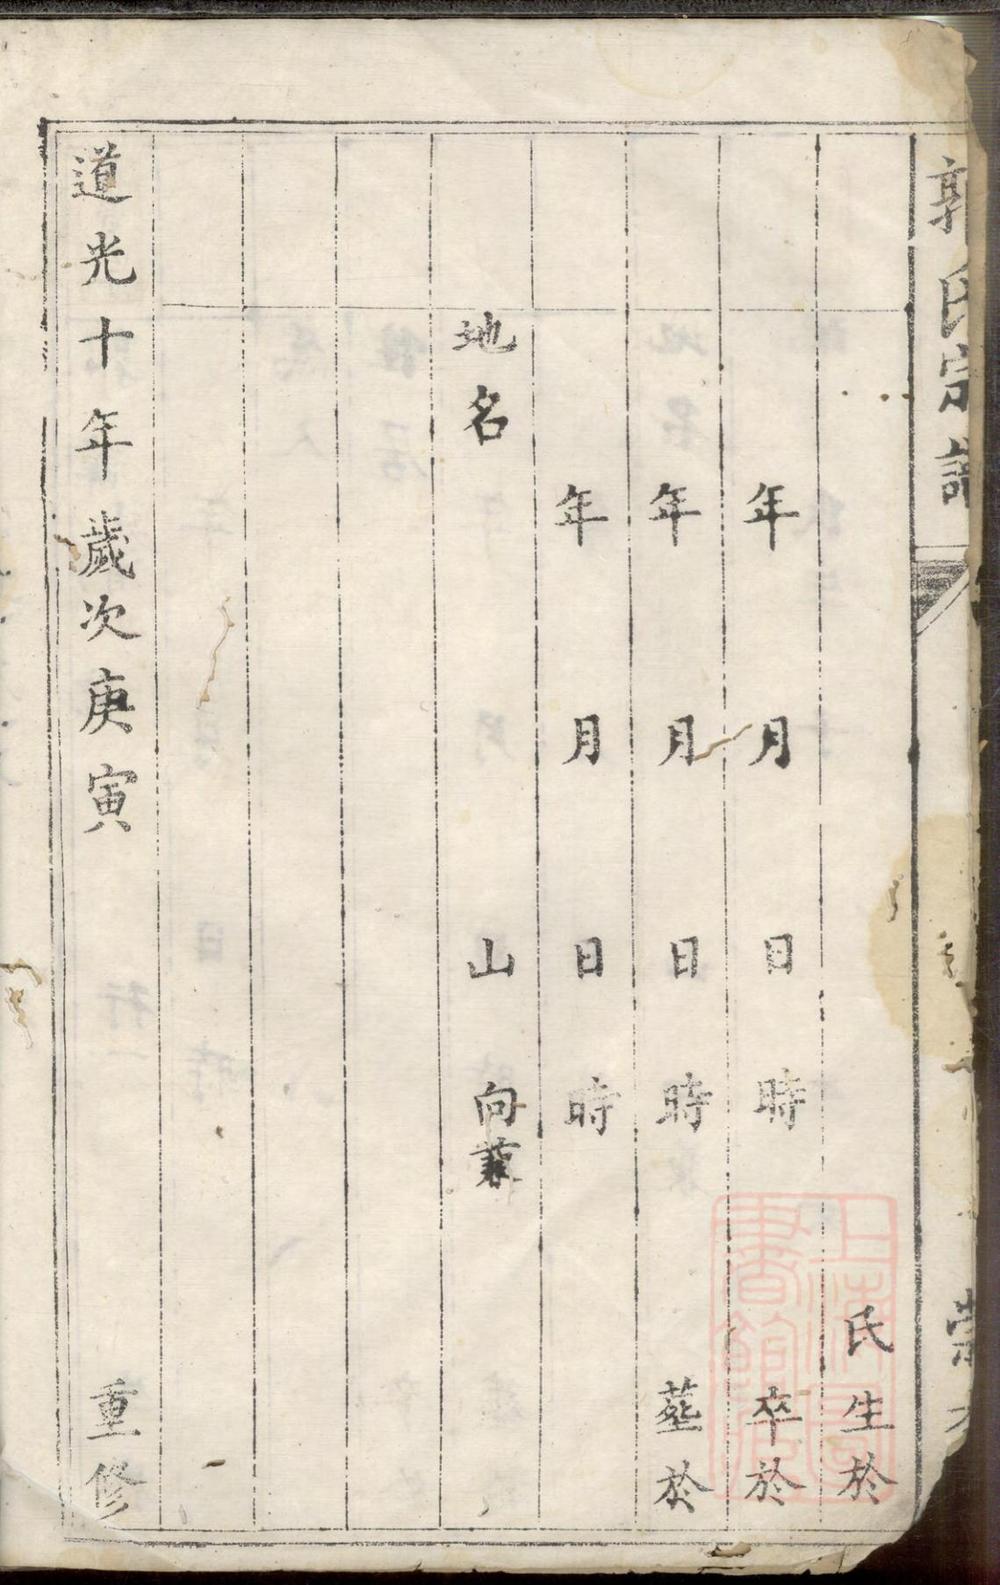 郭氏宗譜
氏生於
年月日時卒於
年月日時葬於
年月日時
地名山向兼
道光十年歲次庚寅重修